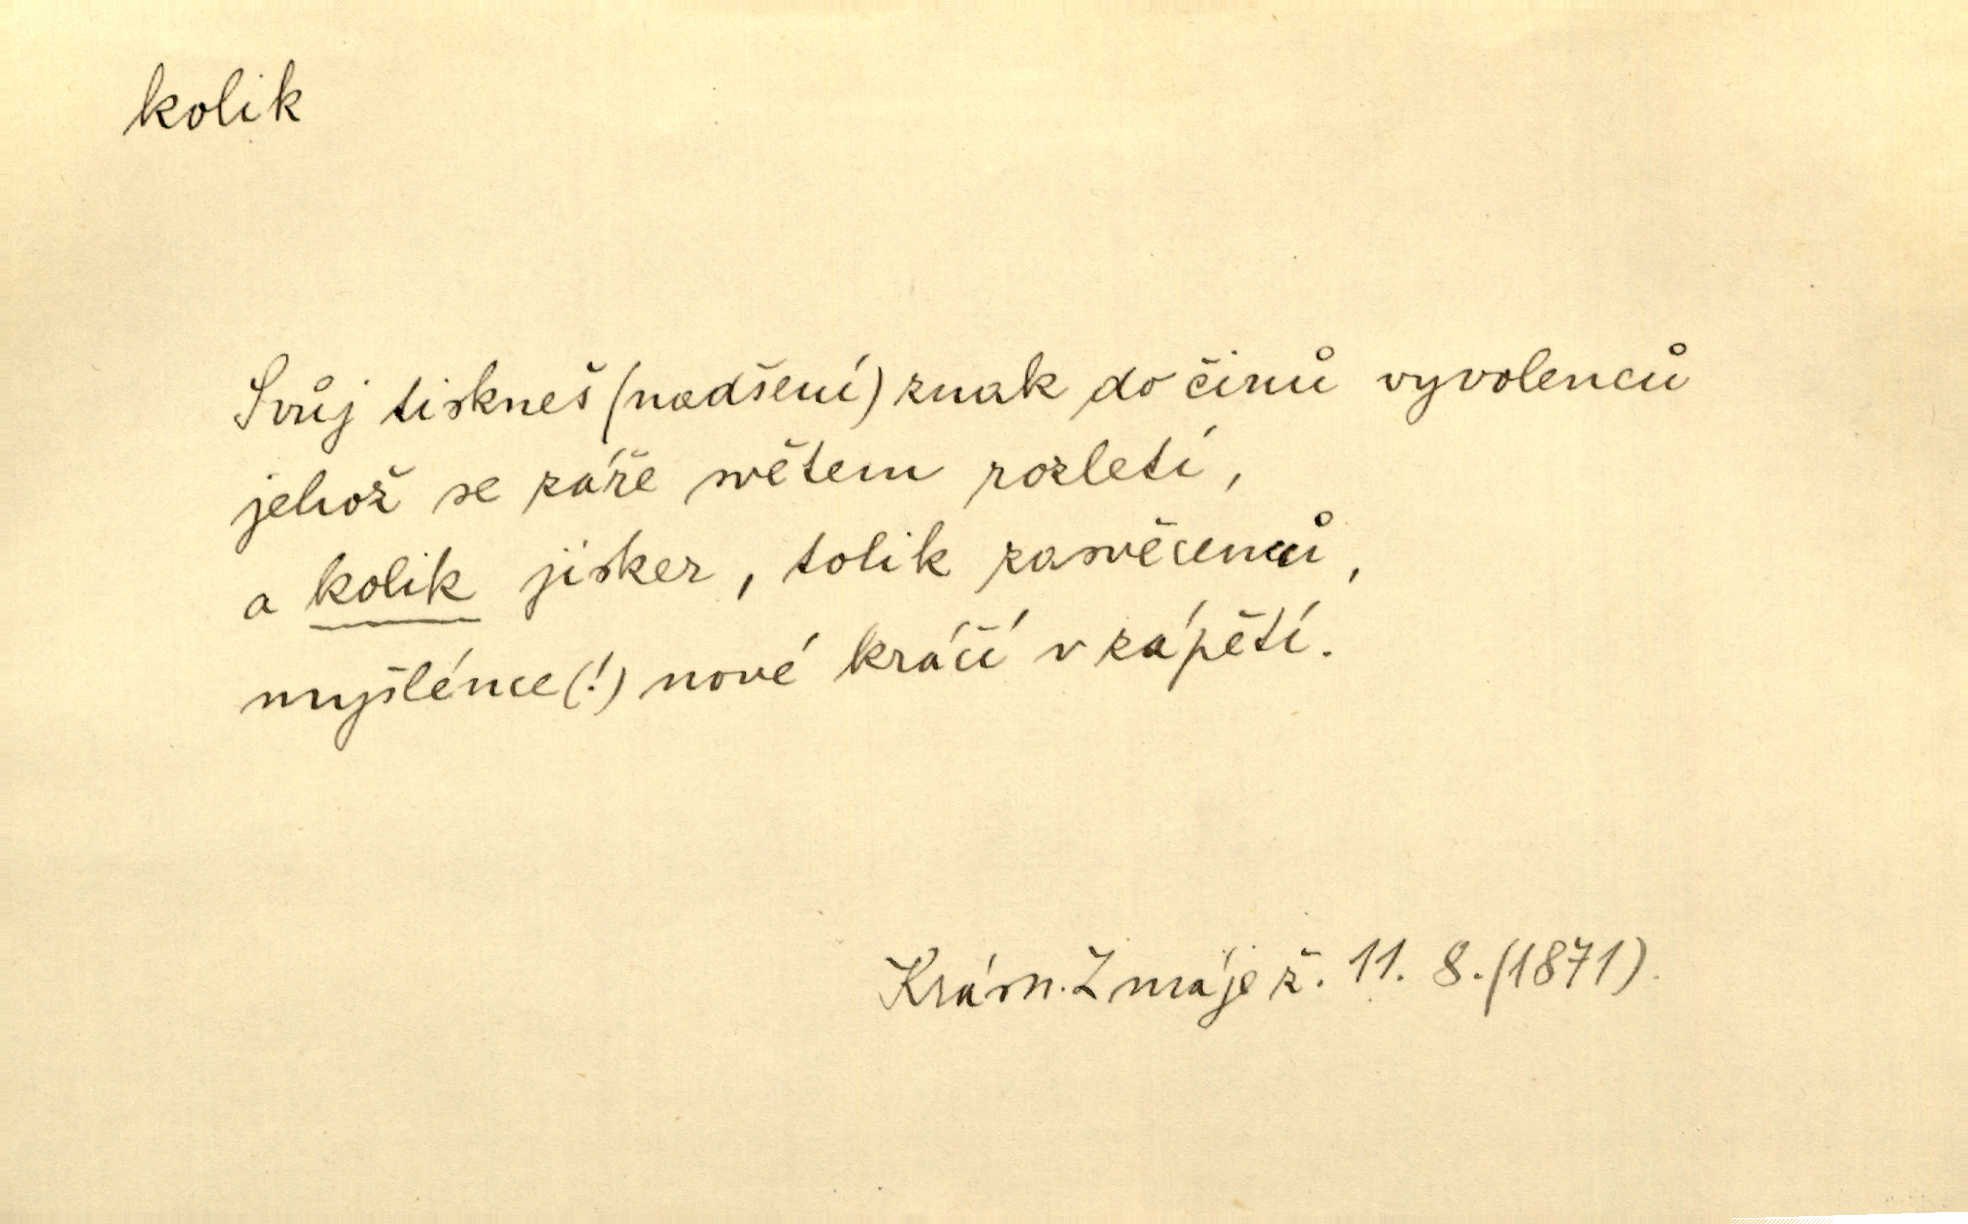 kolik
Svůj tiskneš (nadšení) znak do činů vyvolenců
jehož se záře světem rozletí,
a kolik jisker, tolik zasvěcenců,
myšlénce (!) nové kráčí v zápětí.
Krásn. Z máje ž. 11. 8. (1871).